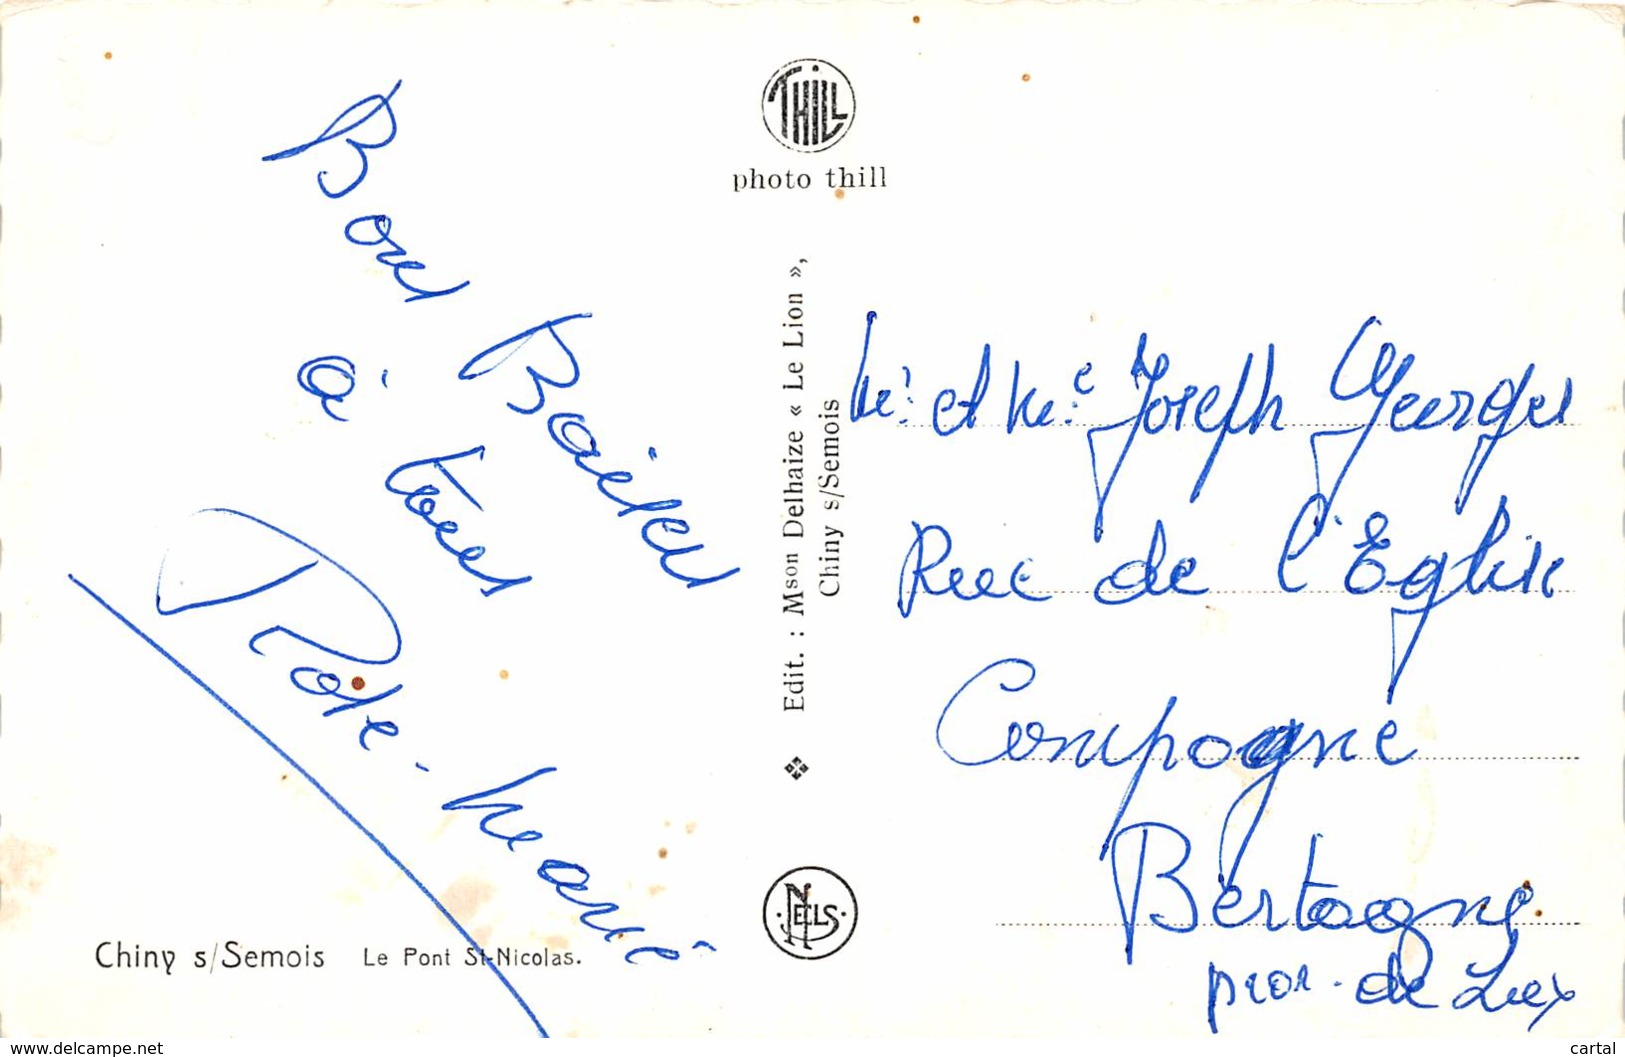 Bons Baisers
à tous
Rose-Marie
Chiny s/Semois Le Pont St-Nicolas.
THILL
photo thill
Edit. : Mson Delhaize « Le Lion »,
Chiny s/Semois
NELS
Mr et Me Joseph Georges
Rue de l'Eglise
Compogne
Bertogne
prov. de Lux
www.delcampe.net
cartal